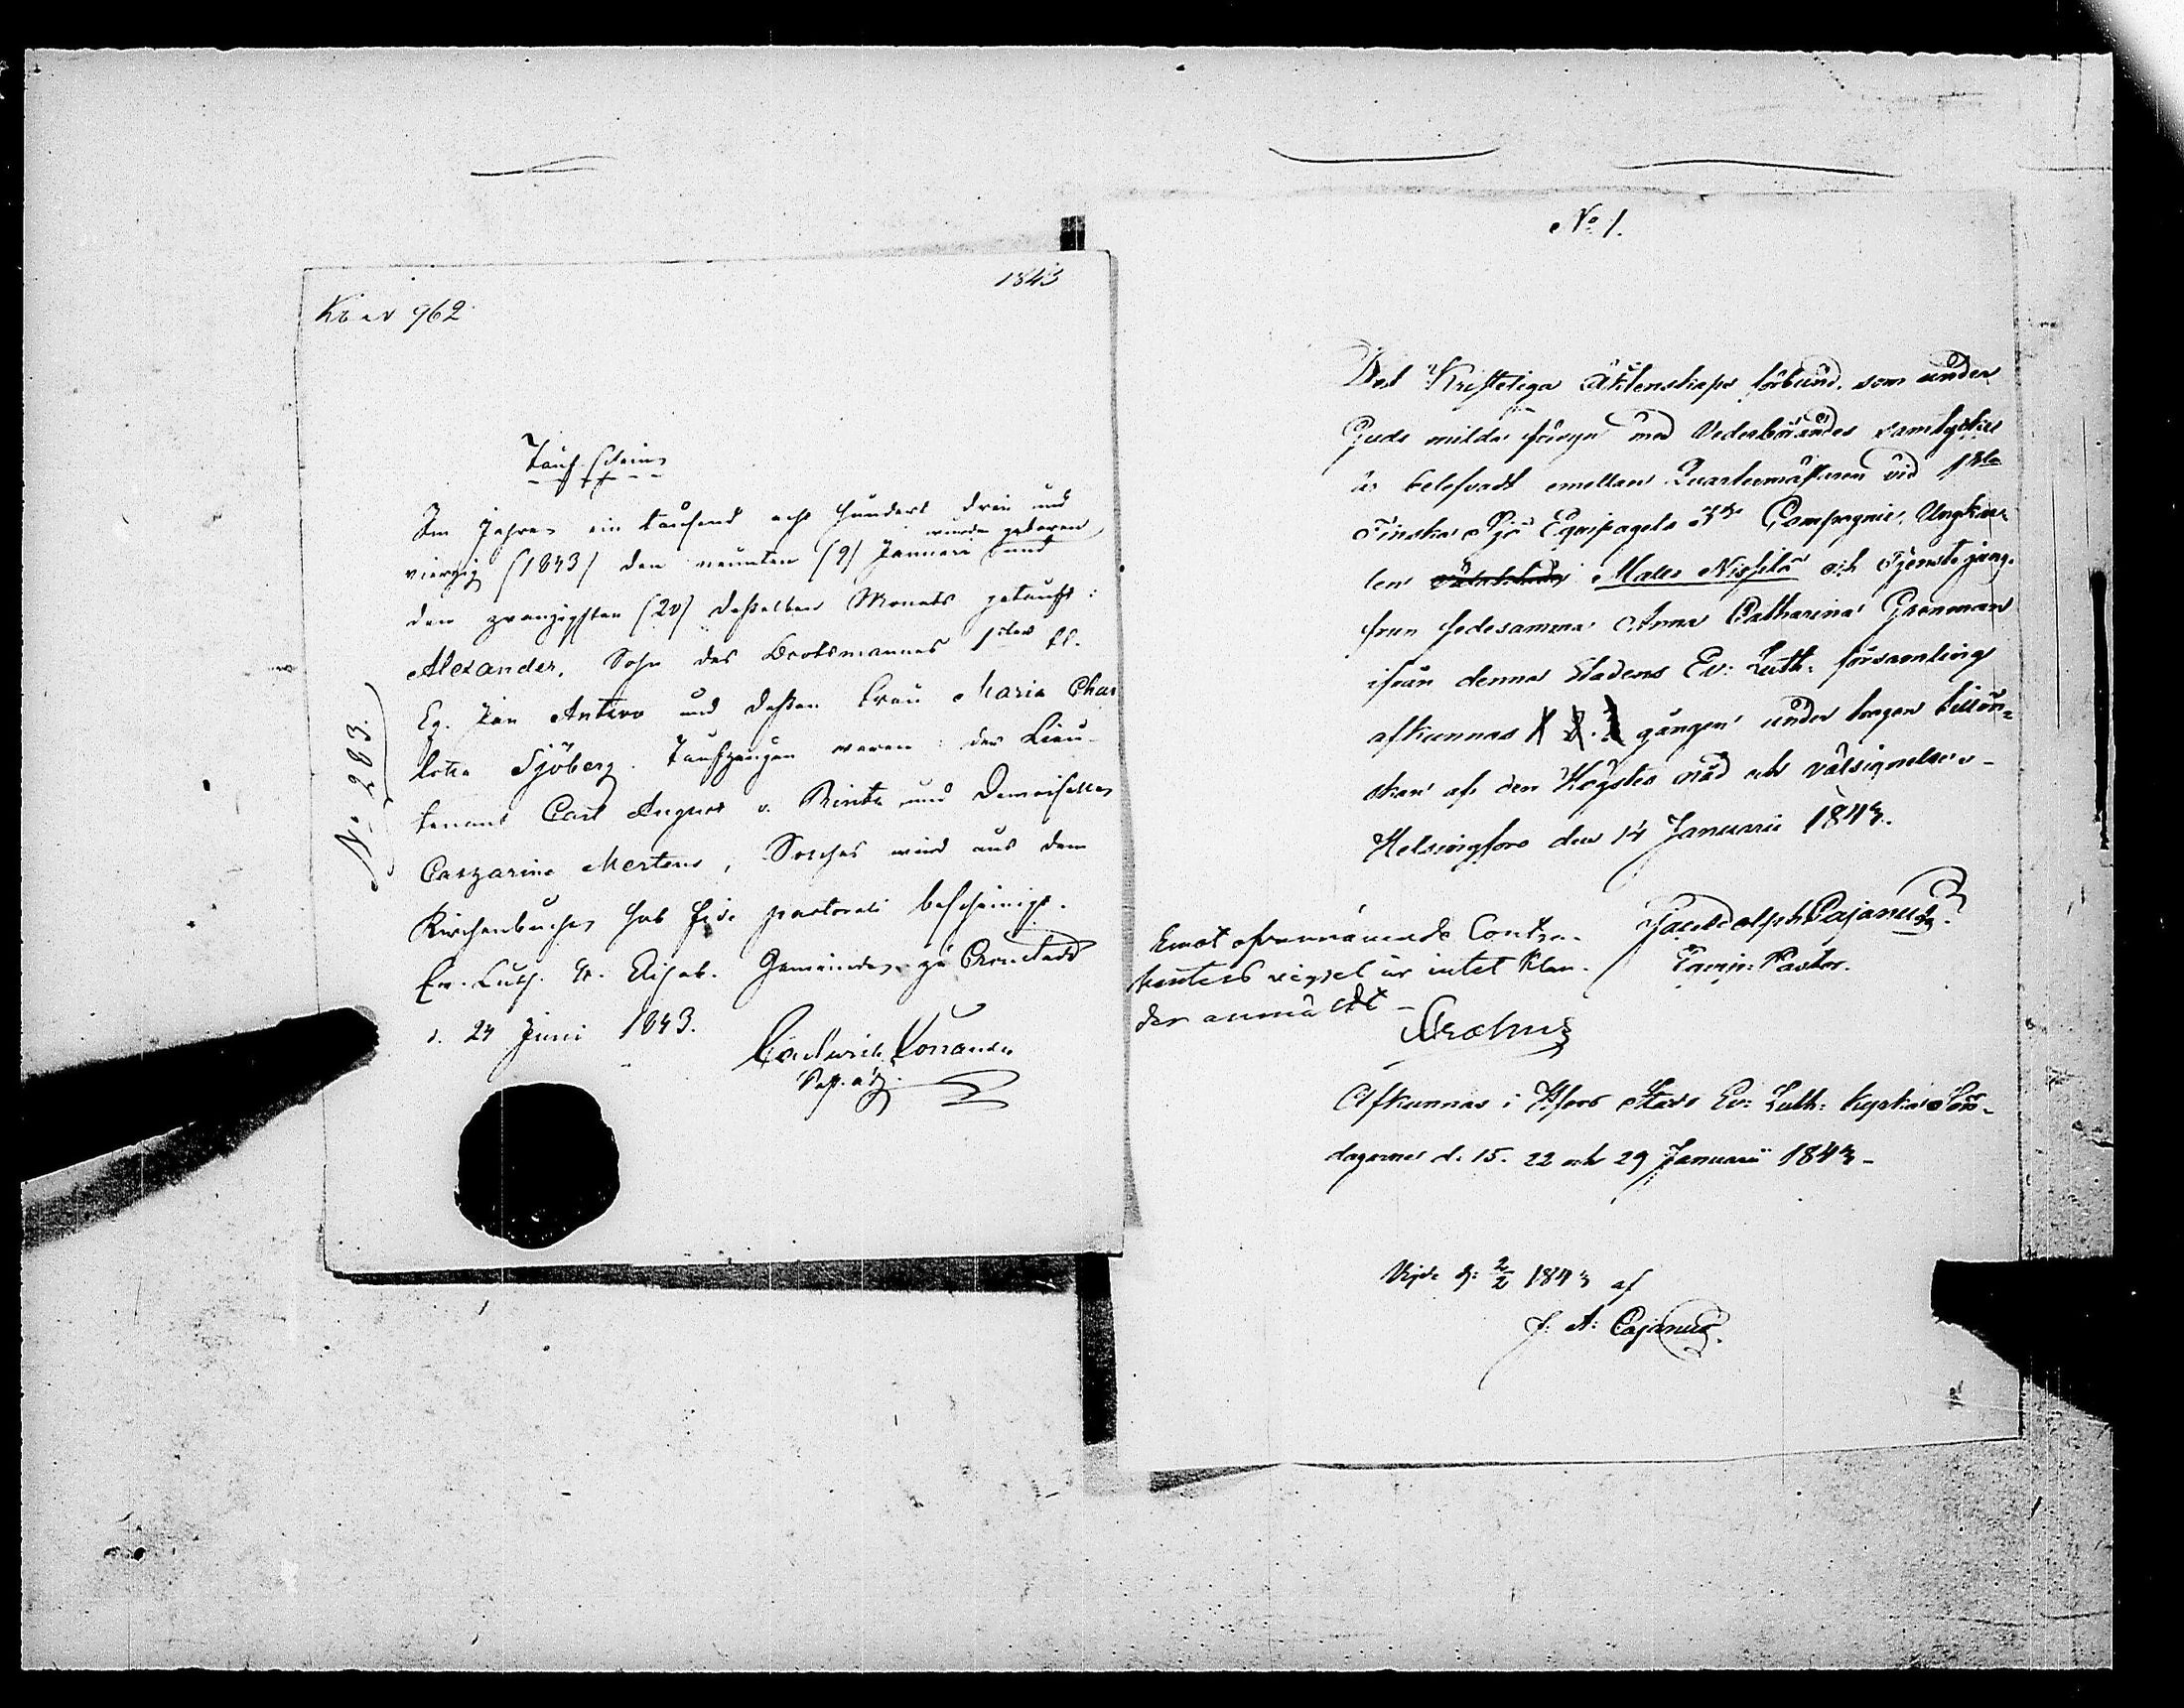 1843
962
No 283.
Taufschein
Im Jahre ein tausend acht hundert drei und
wurde geboren
vierzig (1843) den neunten (9) Januari und
den zwanzigsten (20) desselben Monats getauft:
Alexander, Sohn des Bootsmannes 1sten
Eq. Jan Antero und dessen Frau Maria Char
lotta Sjöberg. Taufzeugen waren: der Lieu-
tenant Carl August v. und Demoiselle
Mertens, Solches wird aus dem
Kirchenbuche sub fide pastorali bescheinigt.
Ev. Luth. St. Elisab. Gemeinde zu Cronstadt
d. 24 Juni 1843.
Past. adj.
No 1.
Det Kristeliga Äktenskaps förbund, som under
Guds milda försyn med Vederbörandes samtycke
är belefvadt emellan Quartermästaren vid 1sta
Finska Sjö Equipagets 3dje Compagnie, Ungkar-
len Matts Nissilä och Tjenstejung-
frun fredesamma Anna Catharina Grönman
ifrån denna Stadens Ev: Luth: församling
afkunnas 1 2. 3 gången under trogen tillön-
skan af den Högstes nåd och välsignelse -
Helsingfors den 14 Januarii 1843.
Jacob Adolph Cajanus.
Equip: Pastor.
Emot ofvannämnde Contra-
henters vigsel är intet klan-
der anmäldt -
Crohns
Afkunnas i Hfors Stads Ev: Luth: kyrka Sön-
dagarne d. 15. 22 och 29 Januarii 1843 -
Vigde d: 2/2 1843 af
J: A: Cajanus.